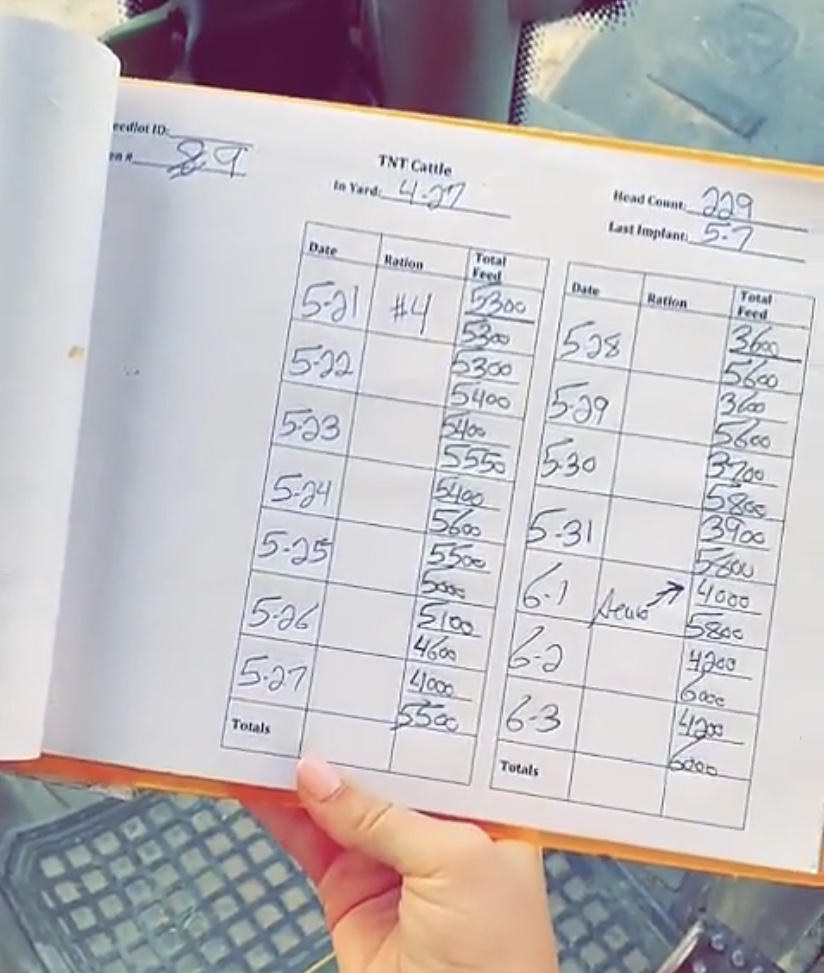 eedlot ID:
en # 89
TNT Cattle
In Yard: 4-27
Head Count: 229
Last Implant: 5-7
Date Ration Total Feed
5-21 #4 5300
5300
5-22 5300
5400
5-23 5400
5550
5-24 5400
5600
5-25 5500
5000
5-26 5100
4600
5-27 4000
5500
Totals
Date Ration Total Feed
5-28 3600
5600
5-29 3600
5600
5-30 3700
5800
5-31 3900
5800
6-1 4000
5800
6-2 4200
6000
6-3 4200
6000
Totals